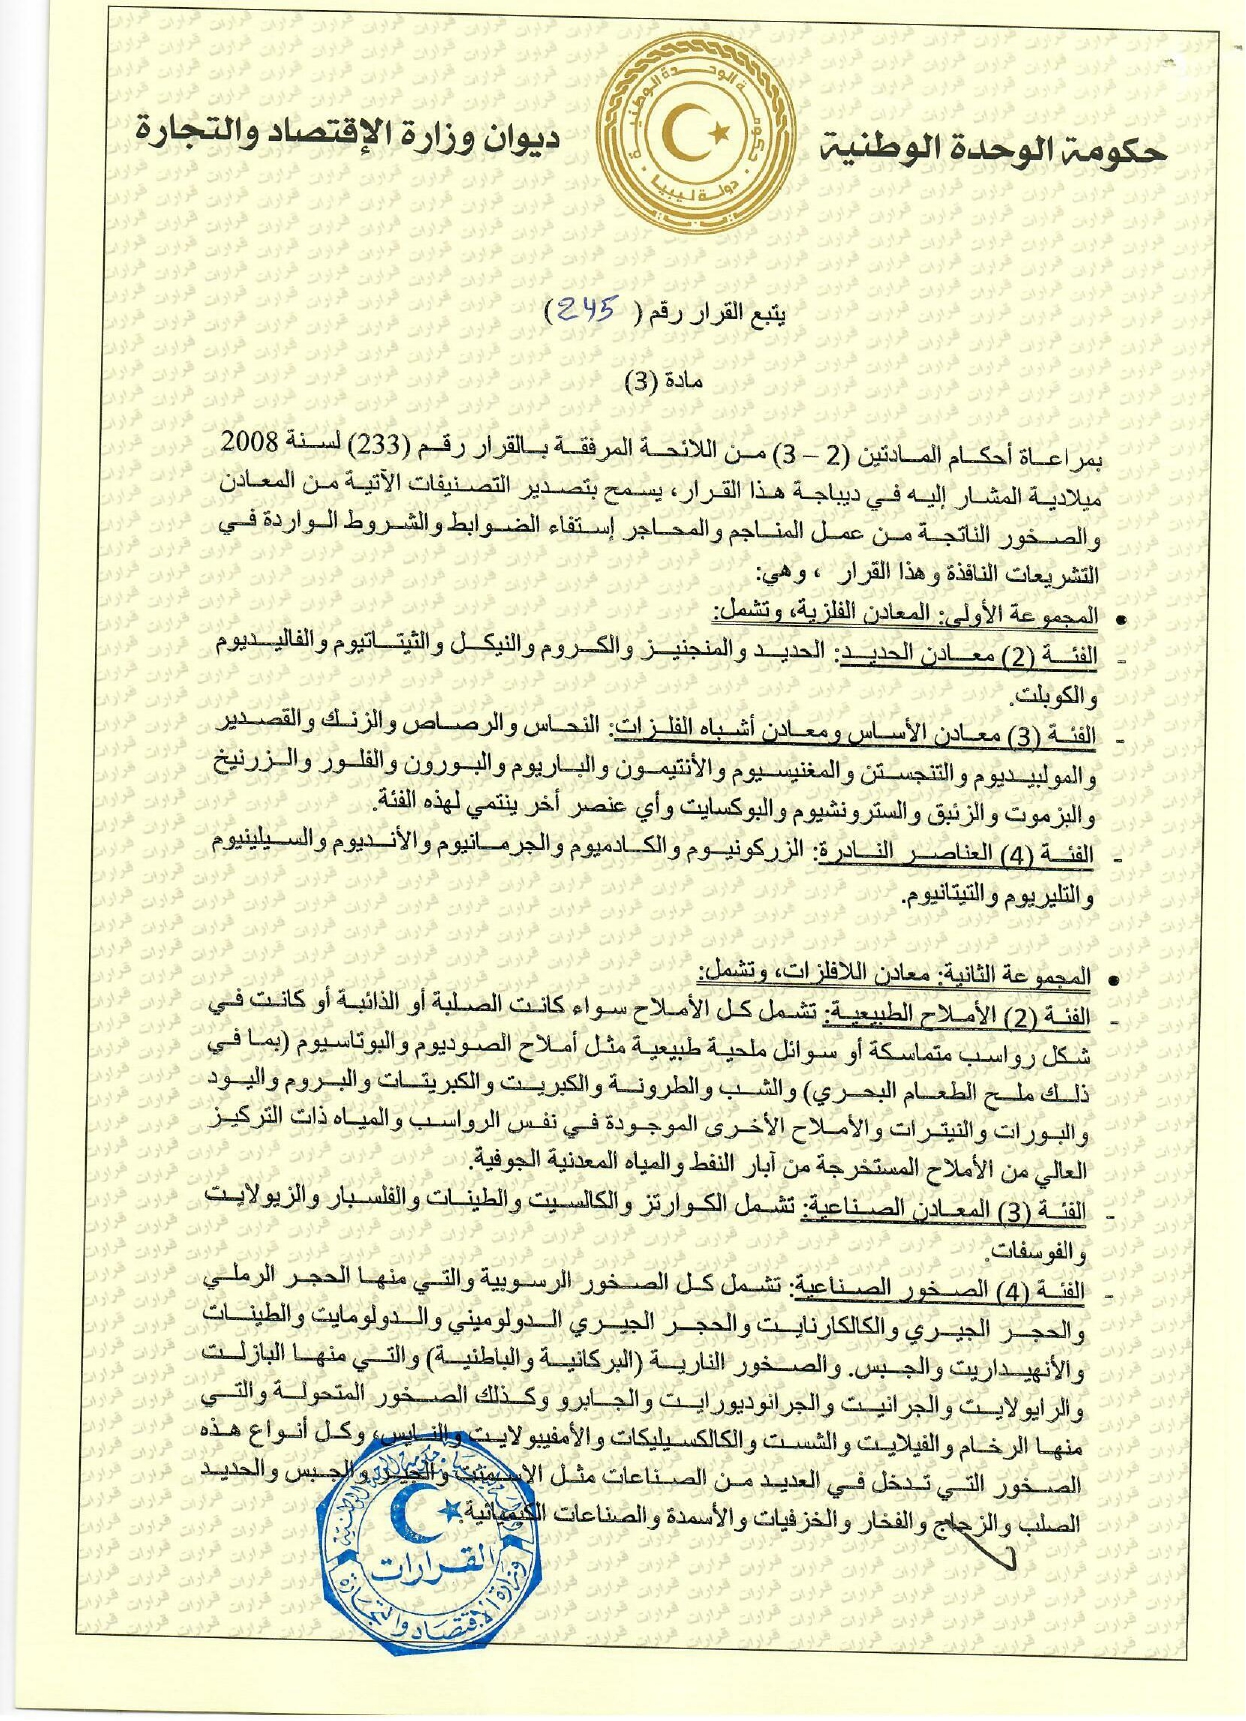 حكومة الوحدة الوطنية
حكومة الوحدة الوطنية
دولة ليبيا
ديوان وزارة الإقتصاد والتجارة
يتبع القرار رقم ( 245 )
مادة (3)
بمراعاة أحكام المادتين (2 – 3) من اللائحة المرفقة بالقرار رقم (233) لسنة 2008
ميلادية المشار إليه في ديباجة هذا القرار، يسمح بتصدير التصنيفات الآتية من المعادن
والصخور الناتجة من عمل المناجم والمحاجر إستفاء الضوابط والشروط الواردة في
التشريعات النافذة وهذا القرار ، وهي:
• المجموعة الأولى: المعادن الفلزية، وتشمل:
- الفئة (2) معادن الحديد: الحديد والمنجنيز والكروم والنيكل والثيتاتيوم والفاليديوم
والكوبلت.
- الفئة (3) معادن الأساس ومعادن أشباه الفلزات: النحاس والرصاص والزنك والقصدير
والمولبيديوم والتنجستن والمغنيسيوم والأنتيمون والباريوم والبورون والفلور والزرنيخ
والبزموت والزئبق والسترونشيوم والبوكسايت وأي عنصر أخر ينتمي لهذه الفئة.
- الفئة (4) العناصر النادرة: الزركونيوم والكادميوم والجرمانيوم والأنديوم والسيلينيوم
والتليريوم والتيتانيوم.
• المجموعة الثانية: معادن اللافلزات، وتشمل:
- الفئة (2) الأملاح الطبيعية: تشمل كل الأملاح سواء كانت الصلبة أو الذائبة أو كانت في
شكل رواسب متماسكة أو سوائل ملحية طبيعية مثل أملاح الصوديوم والبوتاسيوم (بما في
ذلك ملح الطعام البحري) والشب والطرونة والكبريت والكبريتات والبروم واليود
والبورات والنيترات والأملاح الأخرى الموجودة في نفس الرواسب والمياه ذات التركيز
العالي من الأملاح المستخرجة من آبار النفط والمياه المعدنية الجوفية.
- الفئة (3) المعادن الصناعية: تشمل الكوارتز والكالسيت والطينات والفلسبار والزيولايت
والفوسفات.
- الفئة (4) الصخور الصناعية: تشمل كل الصخور الرسوبية والتي منها الحجر الرملي
والحجر الجيري والكالكارنايت والحجر الجيري الدولوميني والدولومايت والطينات
والأنهيداريت والجبس. والصخور النارية (البركانية والباطنية) والتي منها البازلت
والرايولايت والجرانيت والجرانوديورايت والجابرو وكذلك الصخور المتحولة والتي
منها الرخام والفيلايت والشست والكالكسيليكات والأمفيبولايت والنايس، وكل أنواع هذه
الصخور التي تدخل في العديد من الصناعات مثل الاسمنت والجير والجبس والحديد
الصلب والزجاج والفخار والخزفيات والأسمدة والصناعات الكيميائية.
القرارات
وزارة الإقتصاد والتجارة